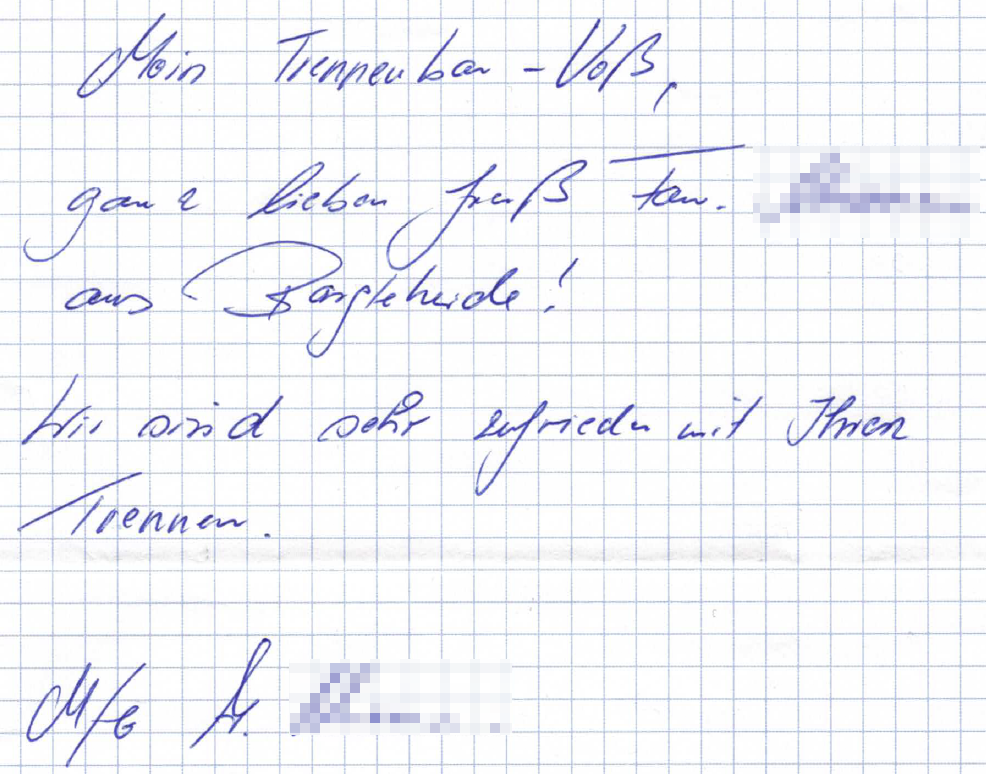 Moin Treppenbau-Voß,
ganz lieben Gruß Fam.
aus Bargteheide!
Wir sind sehr zufrieden mit Ihren
Treppen.
MfG A.